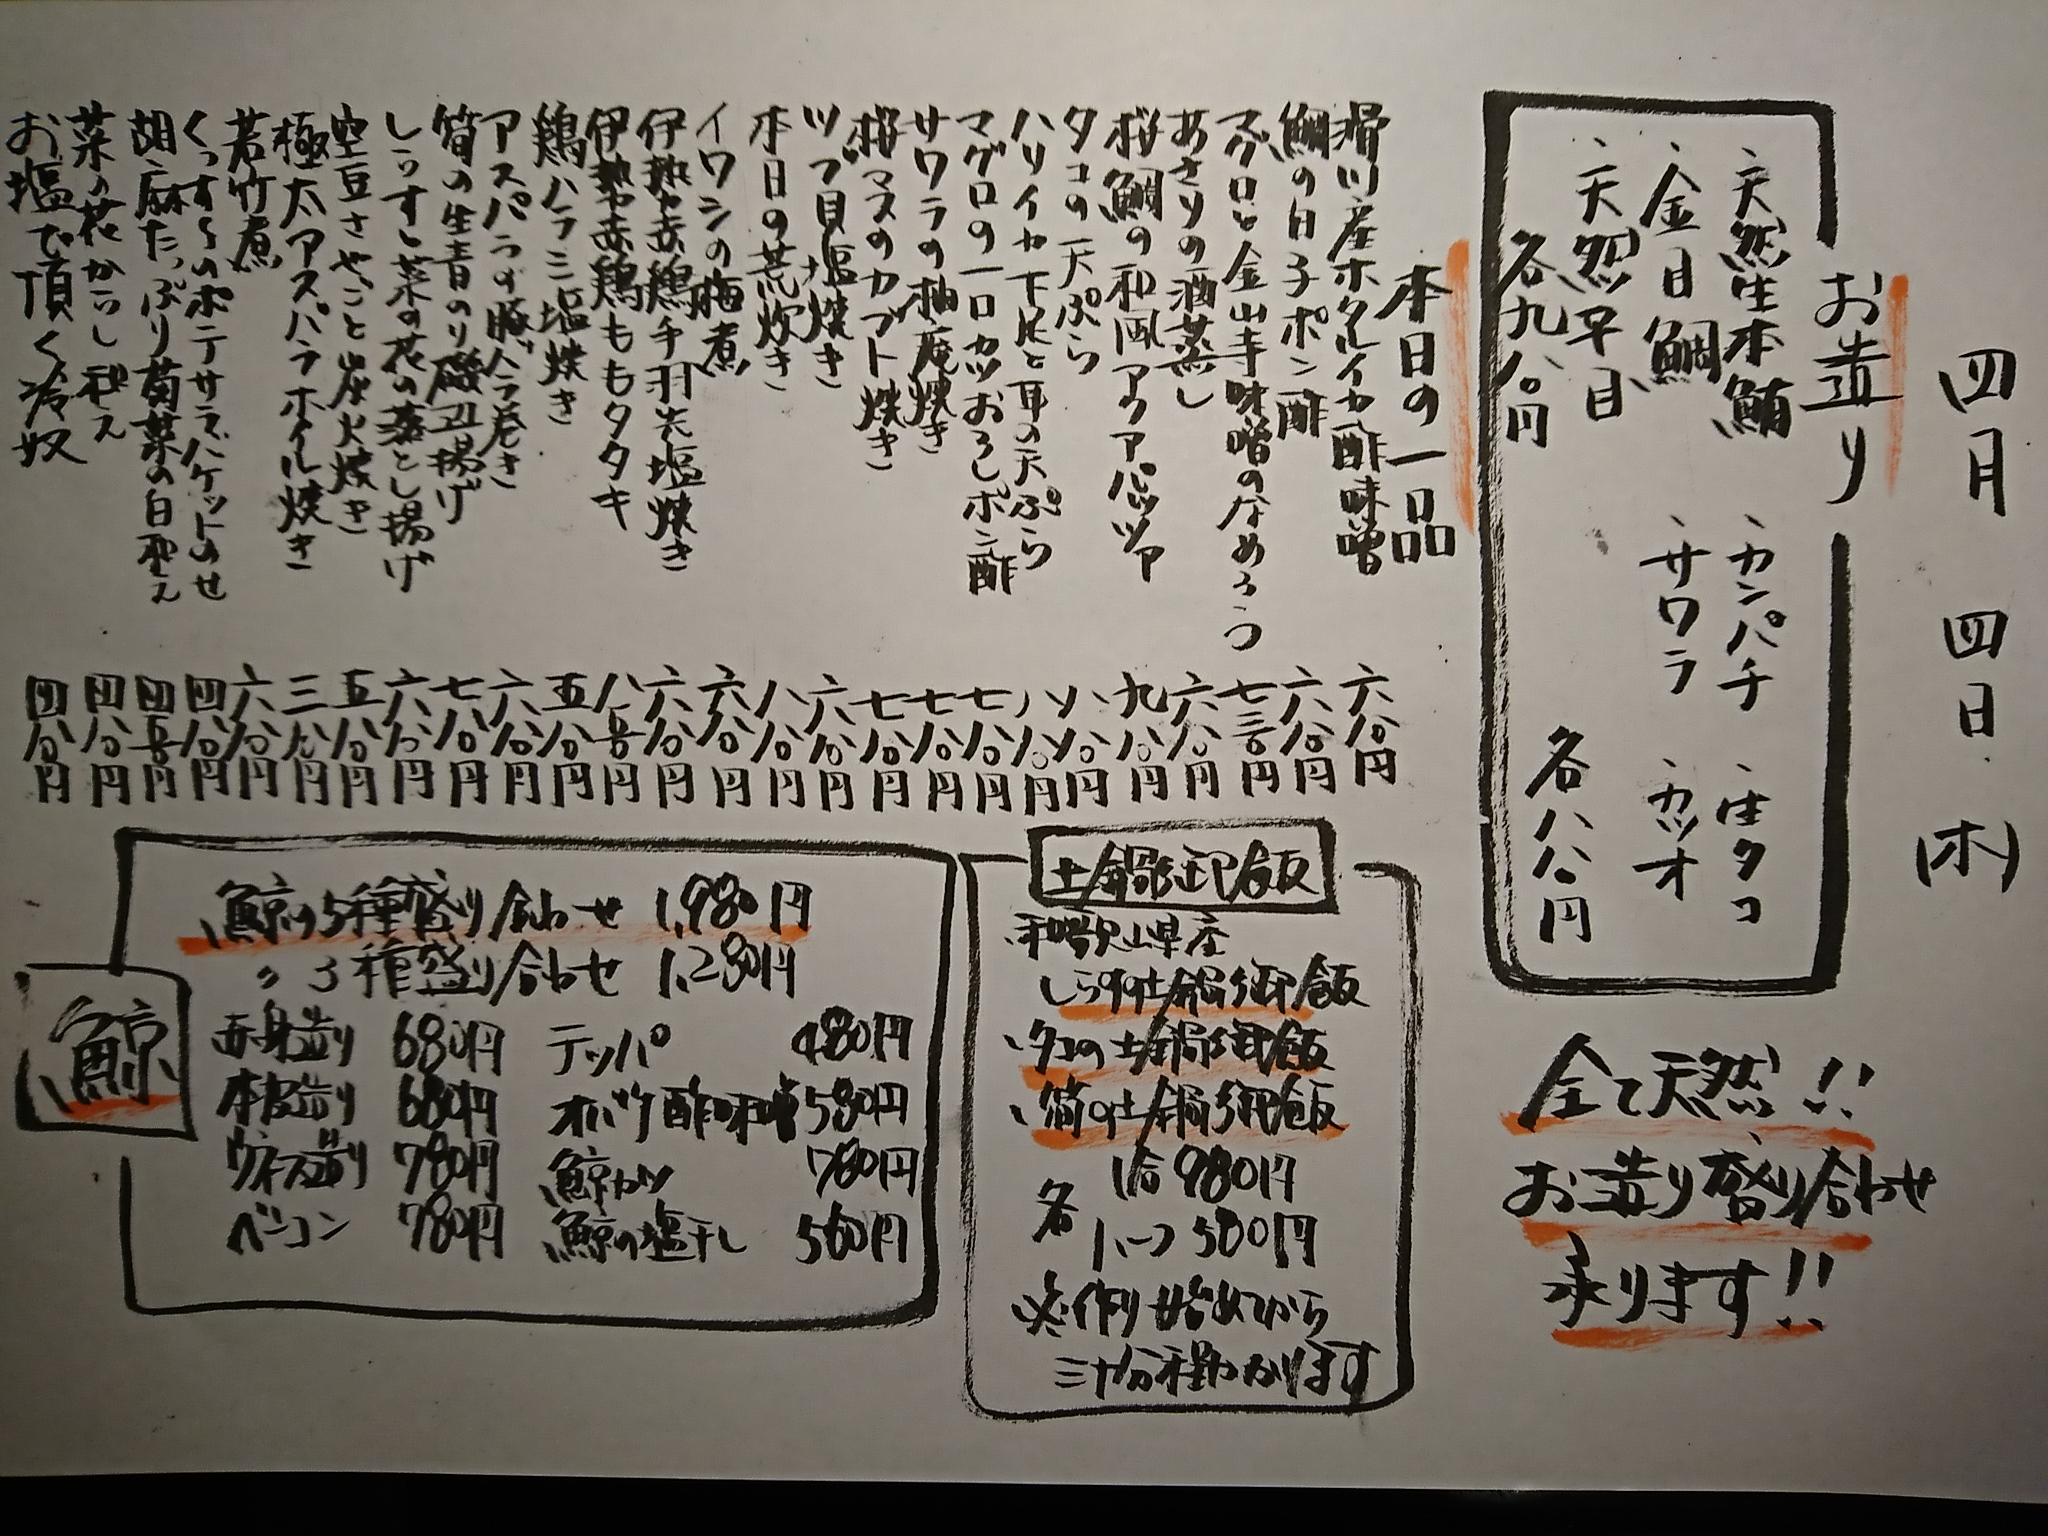 四月 四日 (木)
お造り
、天然生本鮪
、金目鯛
、天然平目
各九八〇円
、カンパチ
、サワラ
、生タコ
、カツオ
各八八〇円
全て天然!!
お造り盛り合わせ
承ります!!
本日の一品
滑川産ホタルイカ酢味噌 六八〇円
鯛の白子ポン酢 六八〇円
マグロと金山寺味噌のなめろう 七三〇円
あさりの酒蒸し 六八〇円
桜鯛の和風アクアパッツァ 九八〇円
タコの天ぷら 八八〇円
ハリイカ下足と耳の天ぷら 八八〇円
マグロの一口カツおろしポン酢 七八〇円
サワラの柚庵焼き 七八〇円
桜マスのカブト焼き 七八〇円
ツブ貝塩焼き 六八〇円
本日の荒炊き 八八〇円
イワシの梅煮 六八〇円
伊勢赤鶏手羽先塩焼き 六八〇円
伊勢赤鶏ももタタキ 八五〇円
鶏ハラミ塩焼き 五八〇円
アスパラの豚バラ巻き 六八〇円
筍の生青のり磯辺揚げ 七八〇円
しらすと菜の花の落とし揚げ 六八〇円
空豆さやごと炭火焼き 五八〇円
極太アスパラホイル焼き 三八〇円
若竹煮 六八〇円
くんすぃのポテサラバケットのせ 四八〇円
胡麻たっぷり菊菜の白和え 四五〇円
菜の花からし和え 四八〇円
お塩で頂く冷奴 四八〇円
土鍋御飯
、和歌山県産
しらすの土鍋御飯
、タコの土鍋御飯
、筍の土鍋御飯
各 1合 980円
ハーフ 580円
※作り始めてから
三十分程かかります
鯨
、鯨の5種盛り合わせ 1,980円
〃 3種盛り合わせ 1,280円
赤身造り 680円 テッパ 480円
本皮造り 680円 オバケ酢味噌 580円
ウネス造り 780円 鯨カツ 780円
ベーコン 780円 鯨の塩干し 560円